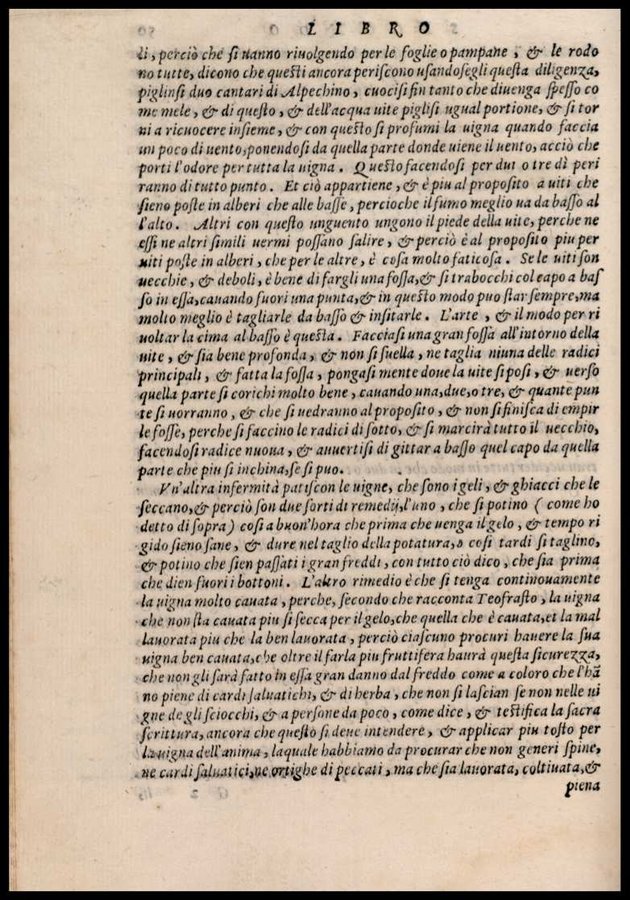 LIBRO
li, perciò che si uanno riuolgendo per le foglie o pampane, & le rodo
no tutte, dicono che questi ancora periscono usandosegli questa diligenza,
piglinsi duo cantari di Alpechino, cuocisi fin tanto che diuenga spesso co
me mele, & di questo, & dell'acqua uite piglisi ugual portione, & si tor
ni a ricuocere insieme, & con questo si profumi la uigna quando faccia
un poco di uento, ponendosi da quella parte donde uiene il uento, acciò che
porti l'odore per tutta la uigna. Questo facendosi per dui o tre dì peri
ranno di tutto punto. Et ciò appartiene, & è piu al proposito a uiti che
sieno poste in alberi che alle basse, percioche il fumo meglio ua da basso al
l'alto. Altri con questo unguento ungono il piede della uite, perche ne
essi ne altri simili uermi possano salire, & perciò è al proposito piu per
uiti poste in alberi, che per le altre, è cosa molto faticosa. Se le uiti son
uecchie, & deboli, è bene di fargli una fossa, & si trabocchi col capo a bas
so in essa, cauando fuori una punta, & in questo modo puo star sempre, ma
molto meglio è tagliarle da basso & insitarle. L'arte, & il modo per ri
uoltar la cima al basso è questa. Facciasi una gran fossa all'intorno della
uite, & sia bene profonda, & non si suella, ne taglia niuna delle radici
principali, & fatta la fossa, pongasi mente doue la uite si posi, & uerso
quella parte si corichi molto bene, cauando una, due, o tre, & quante pun
te si uorranno, & che si uedranno al proposito, & non si finisca di empir
le fosse, perche si faccino le radici di sotto, & si marcirà tutto il uecchio,
facendosi radice nuoua, & auuertisi di gittar a basso quel capo da quella
parte che piu si inchina, se si puo.
Vn'altra infermità patiscon le uigne, che sono i geli, & ghiacci che le
seccano, & perciò son due sorti di remedij, l'uno, che si potino (come ho
detto di sopra) cosi a buon'hora che prima che uenga il gelo, & tempo ri
gido sieno sane, & dure nel taglio della potatura, o cosi tardi si taglino,
& potino che sien passati i gran freddi, con tutto ciò dico, che sia prima
che dien fuori i bottoni. L'altro rimedio è che si tenga continouamente
la uigna molto cauata, perche, secondo che racconta Teofrasto, la uigna
che non sta cauata piu si secca per il gelo, che quella che è cauata, et la mal
lauorata piu che la ben lauorata, perciò ciascuno procuri hauere la sua
uigna ben cauata, che oltre il farla piu fruttifera haurà questa sicurezza,
che non gli sarà fatto in essa gran danno dal freddo come a coloro che l'hã
no piene di cardi saluatichi, & di herba, che non si lascian se non nelle ui
gne de gli sciocchi, & a persone da poco, come dice, & testifica la sacra
scrittura, ancora che questo si deue intendere, & applicar piu tosto per
la uigna dell'anima, laquale habbiamo da procurar che non generi spine,
ne cardi saluatici, ne ortighe di peccati, ma che sia lauorata, coltiuata, &
piena